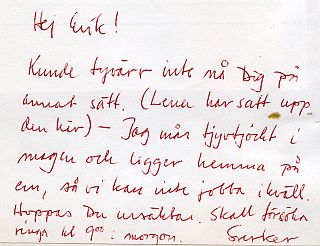 Hej Erik!
Kunde tyvärr inte nå Dig på
annat sätt. (Lena har satt upp
den här) – Jag mår tjyvtjockt i
magen och ligger hemma på
em, så vi kan inte jobba ikväll.
Hoppas Du ursäktar. Skall försöka
ringa kl 9⁰⁰ i morgon.